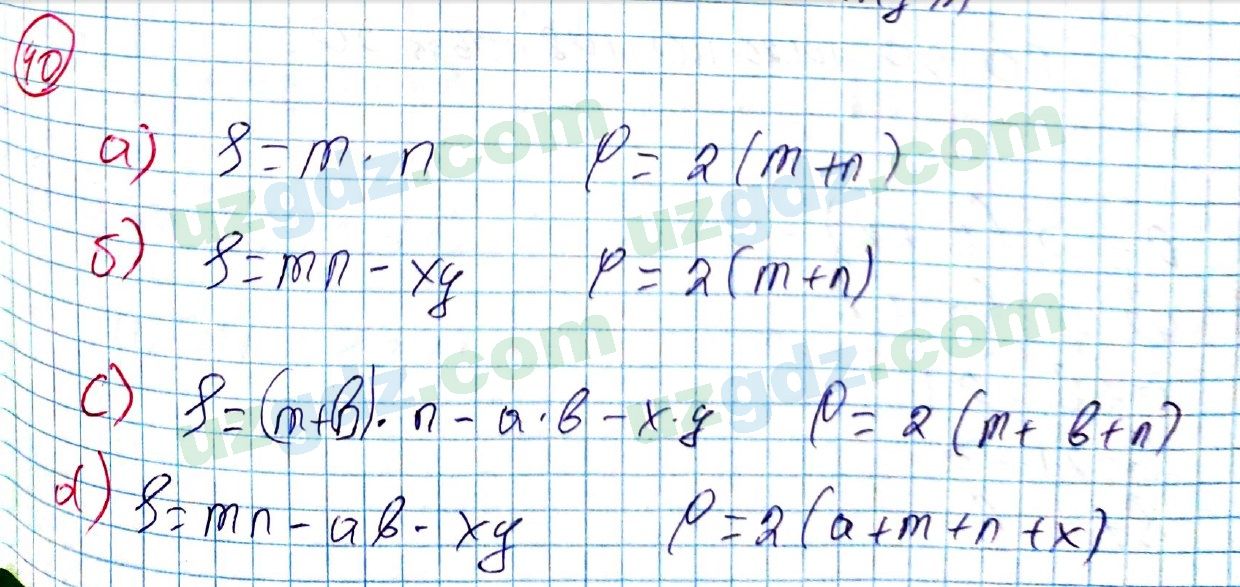 40
a) S = m · n P = 2(m+n)
б) S = mn - xy P = 2(m+n)
c) S = (m+b) · n - a · b - x · y P = 2(m+b+n)
d) S = mn - ab - xy P = 2(a+m+n+x)
uzgdz.com uzgdz.com
uzgdz.com uzgdz.com